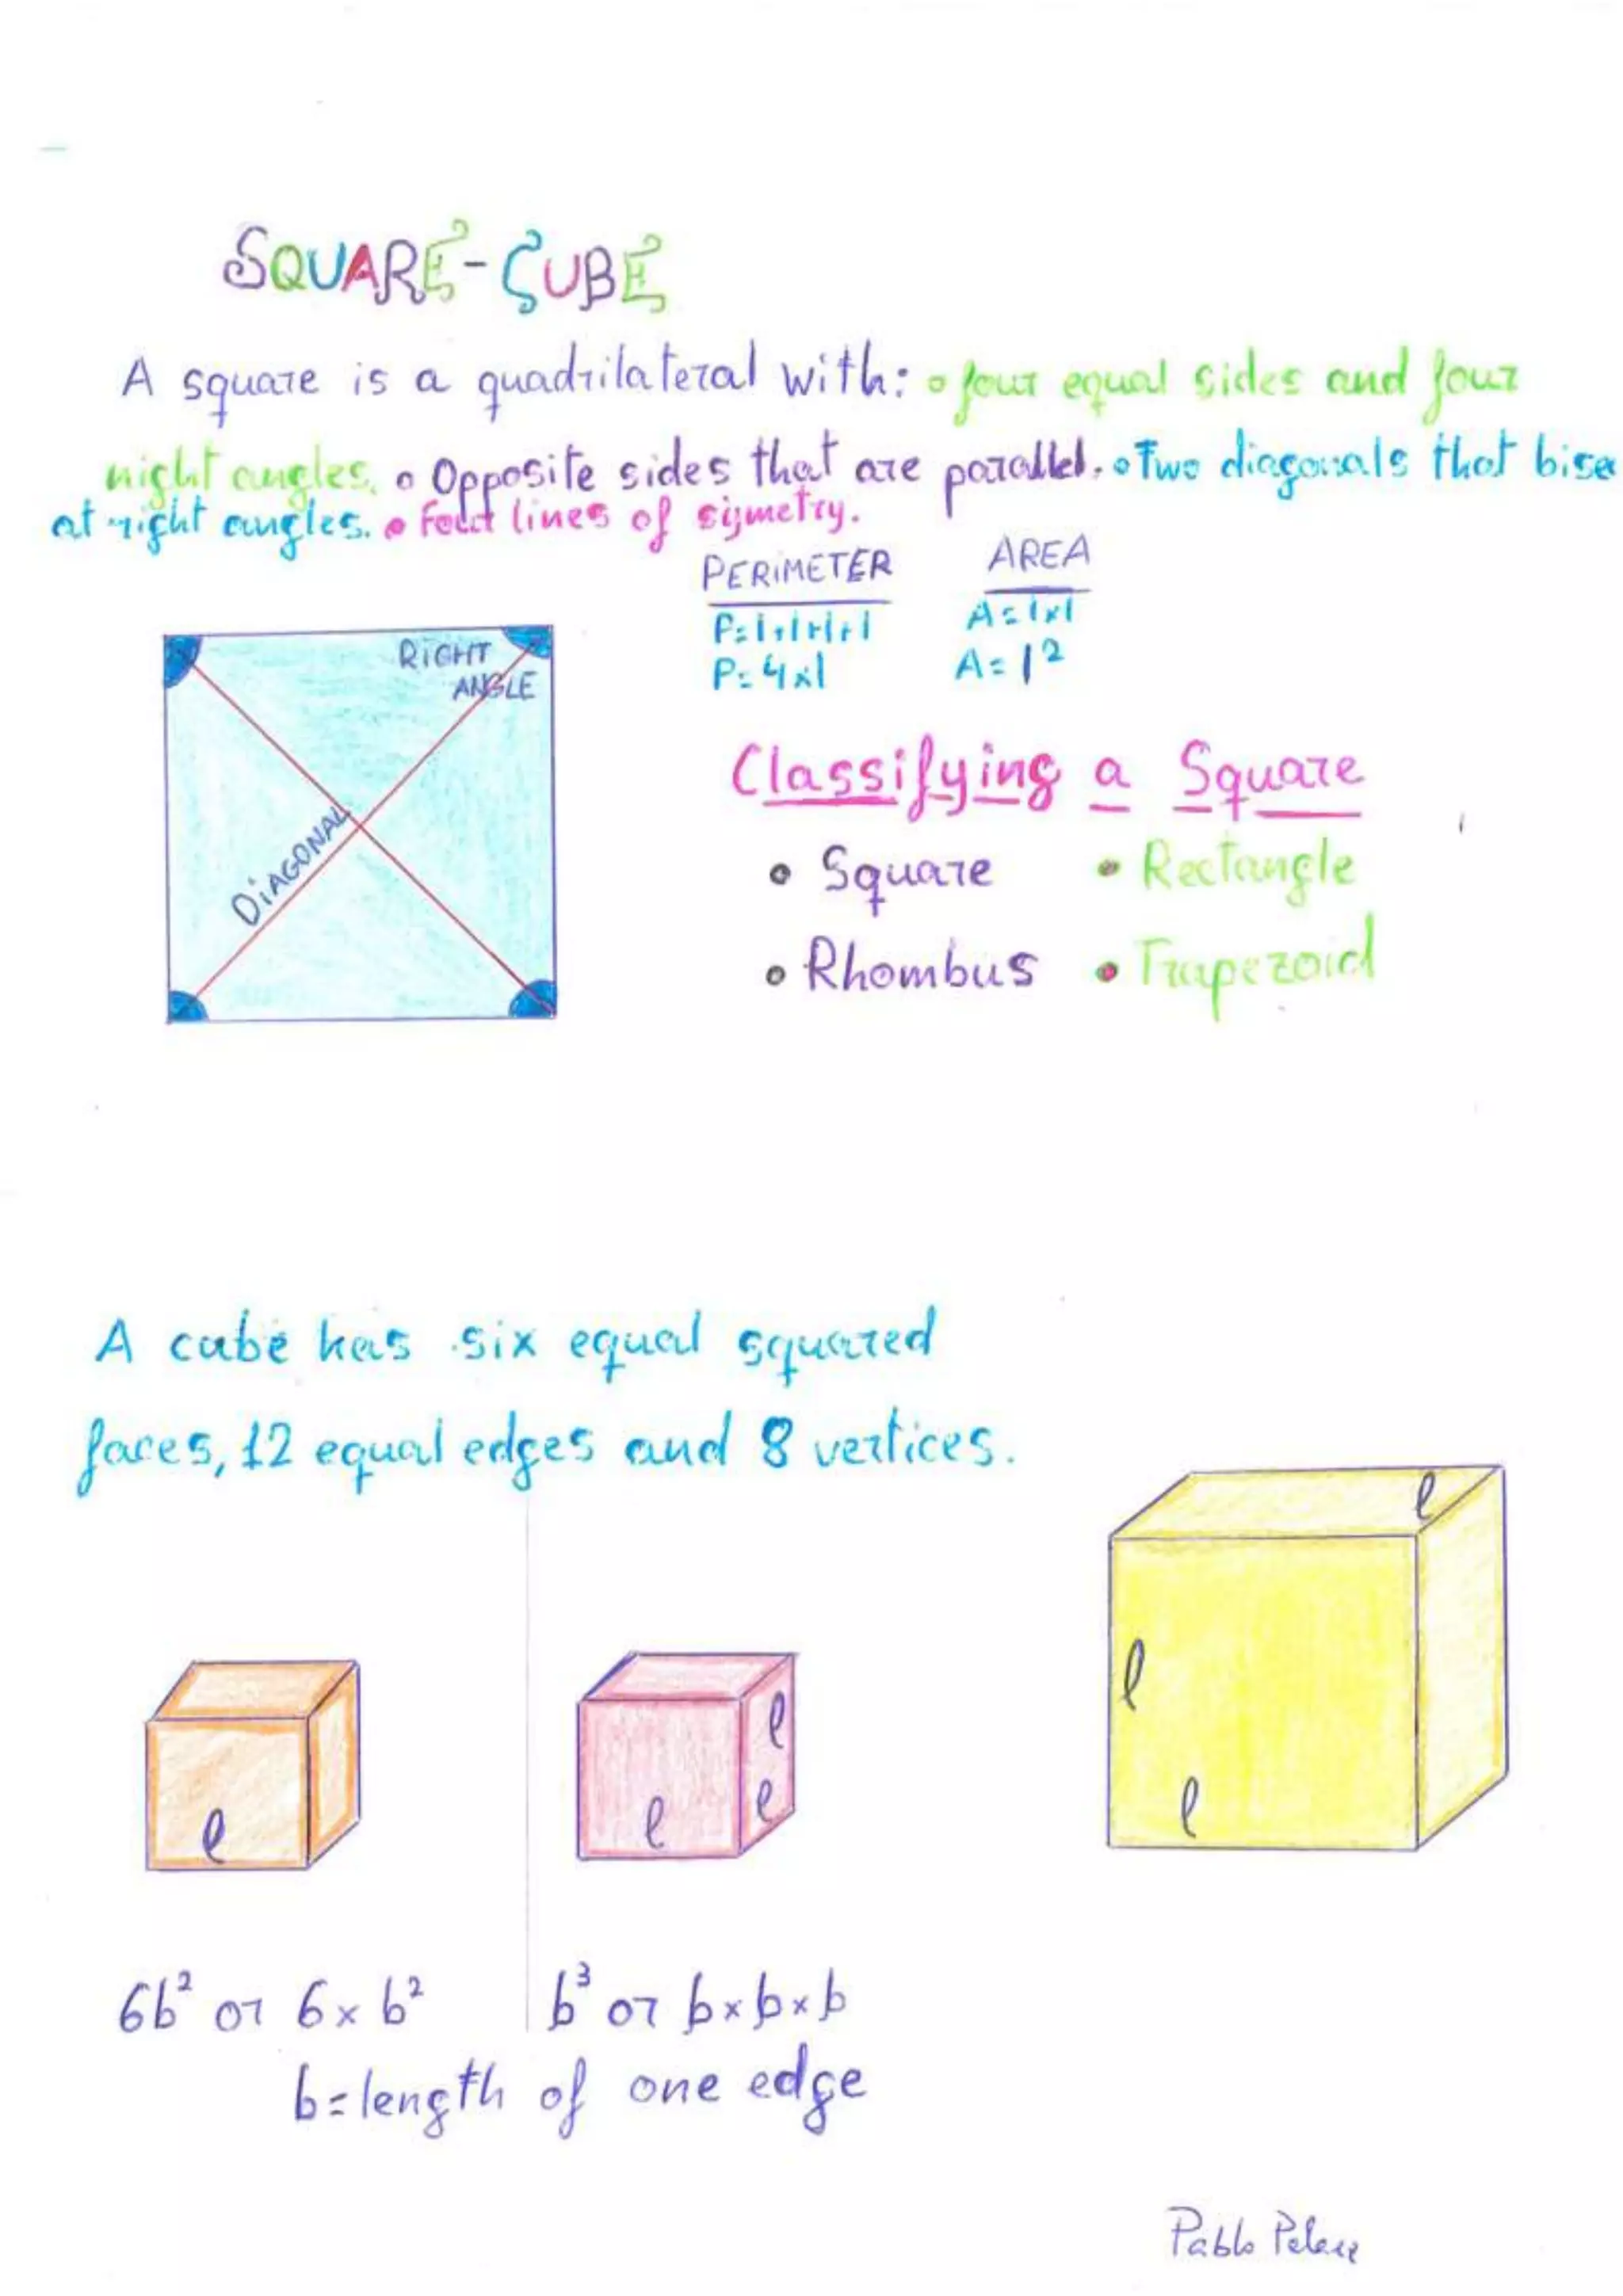 SQUARE-CUBE
A square is a quadrilateral with: • four equal sides and four
right angles. • Opposite sides that are parallel. • Two diagonals that bise
at right angles. • Four lines of symetry.
PERIMETER
P=l+l+l+l
P=4xl
AREA
A=lxl
A=l²
RIGHT
ANGLE
DIAGONAL
Classifying a Square
• Square • Rectangle
• Rhombus • Trapezoid
A cube has six equal squared
faces, 12 equal edges and 8 vertices.
l
l
l
l
l
l
l
6b² or 6 x b²
b³ or b x b x b
b=length of one edge
Pablo